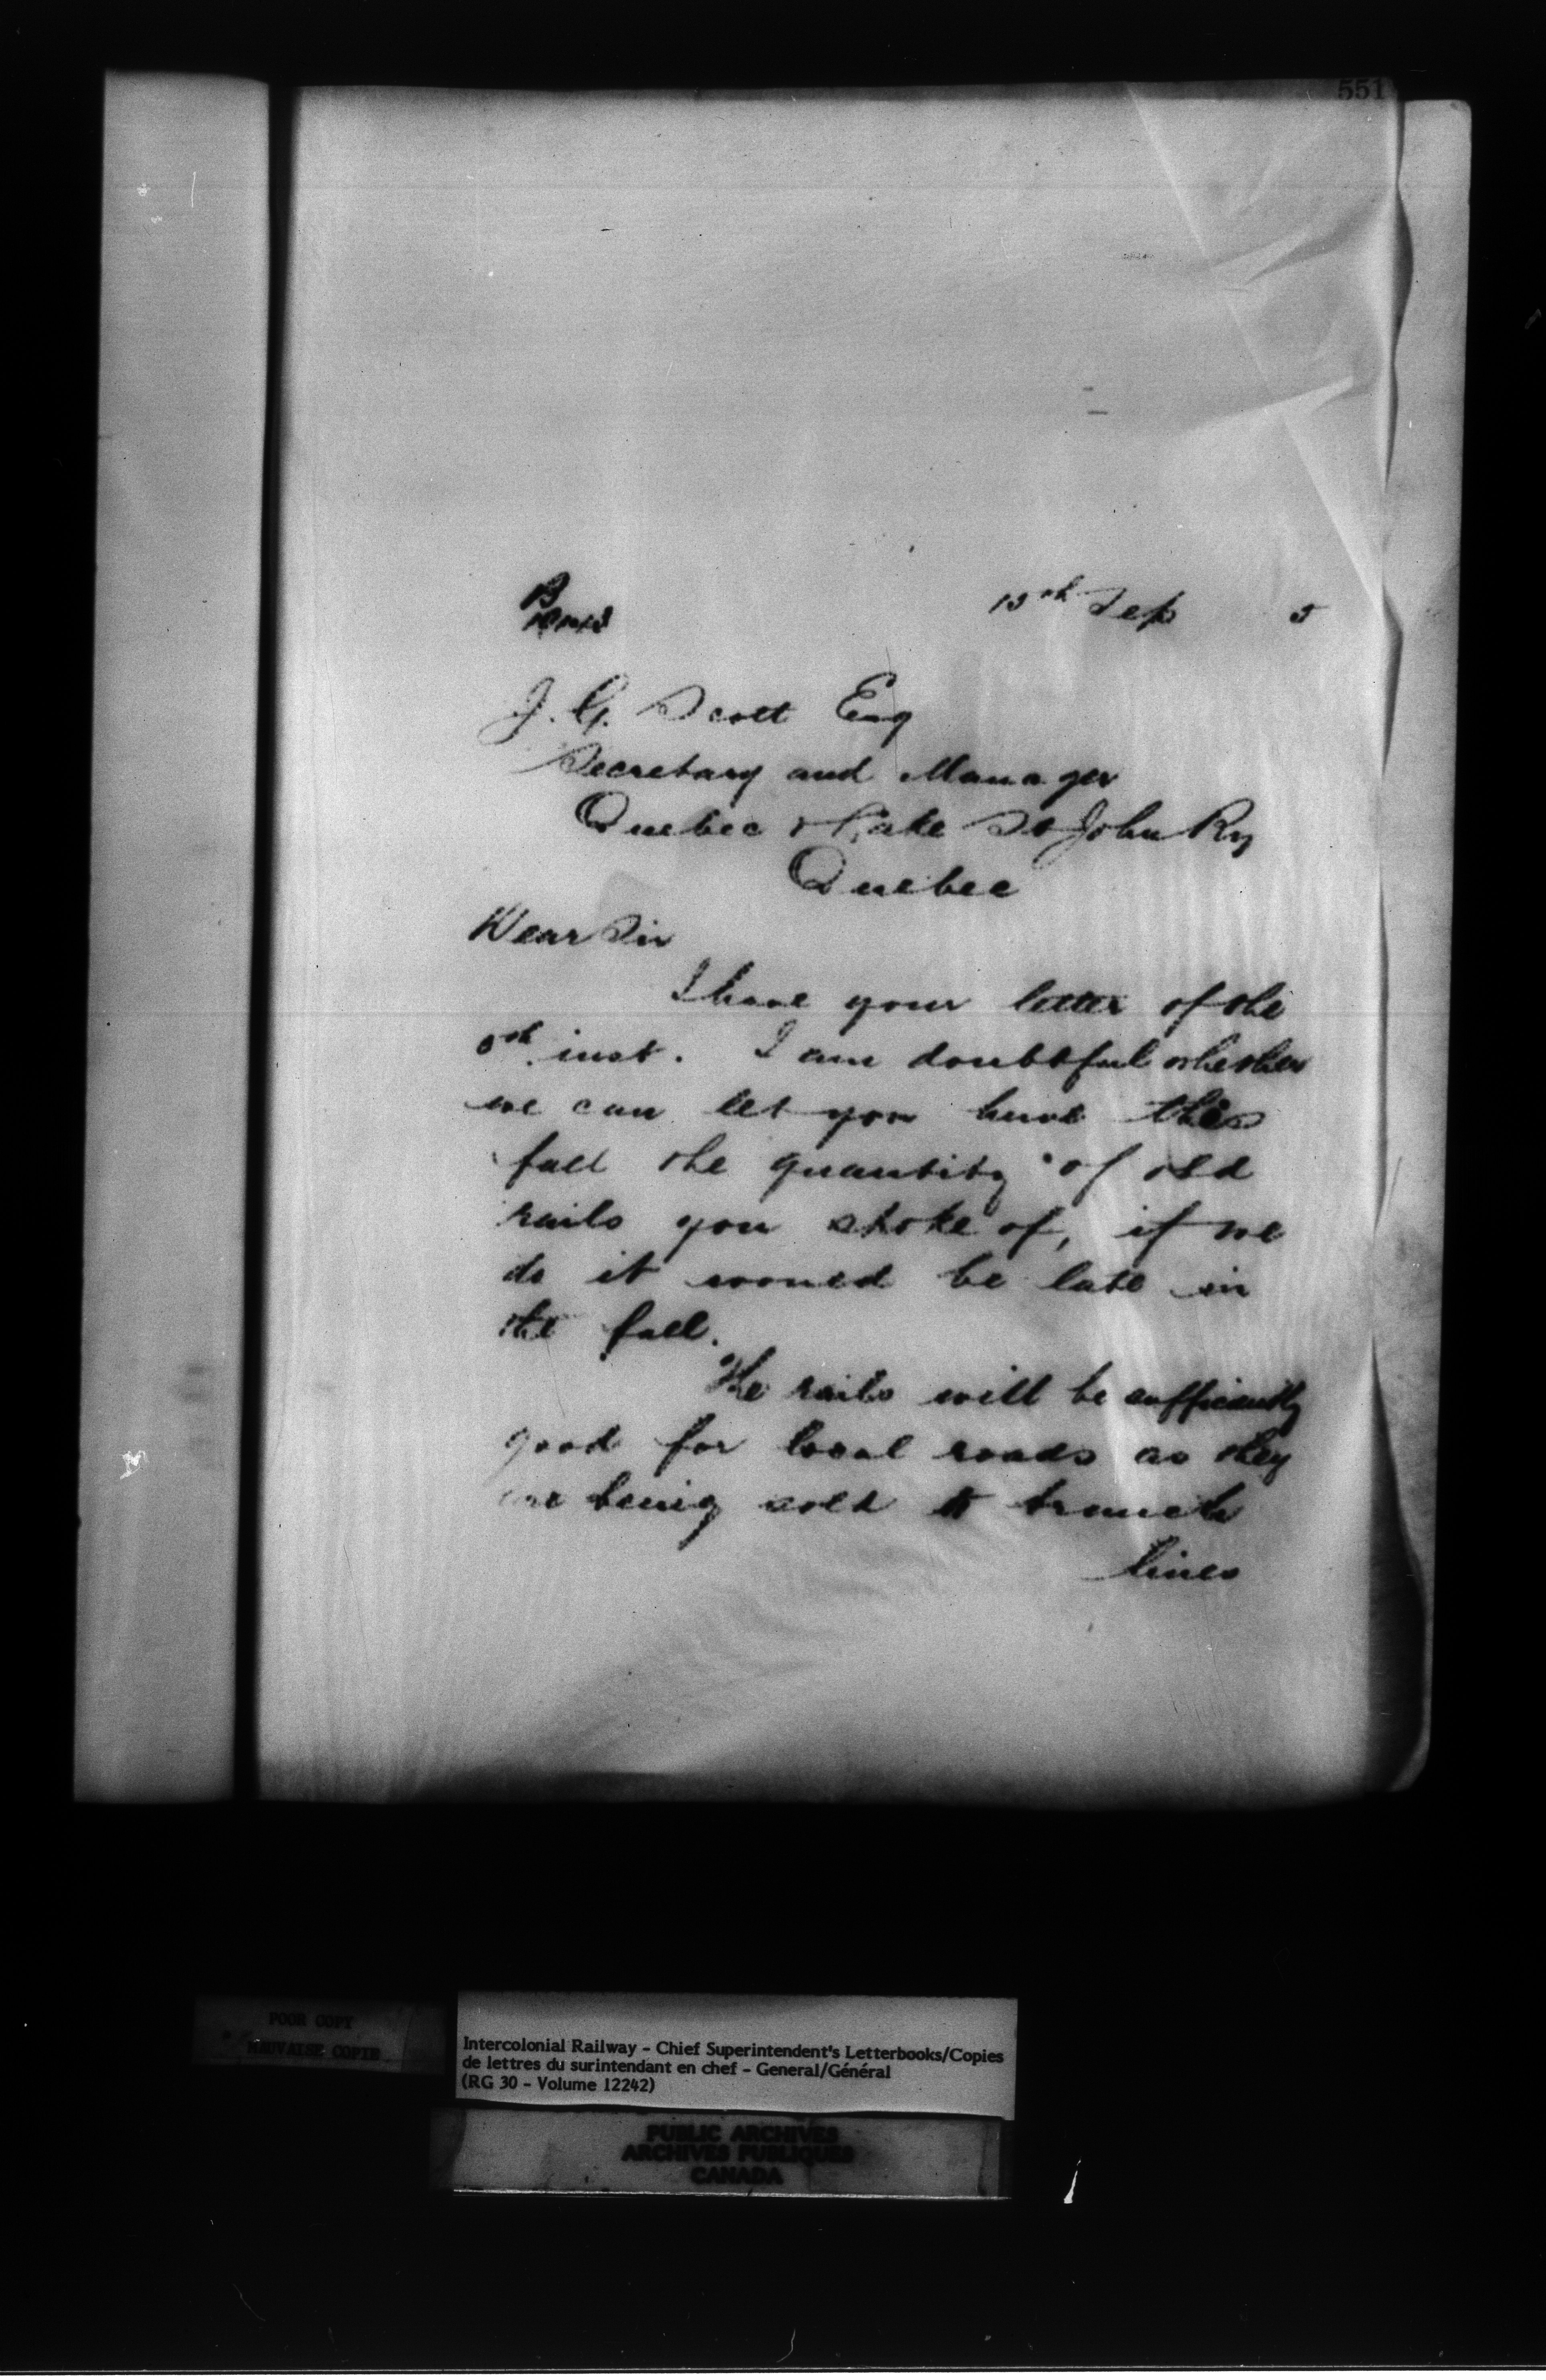 551
B
15th Sep 5
J. G. Scott Esq
Secretary and Manager
Quebec & Lake St John Ry
Quebec
Dear Sir
I have your letter of the
5th inst. I am doubtful whether
we can let you have this
fall the quantity of old
rails you spoke of, if we
do it would be late in
the fall.
The rails will be sufficiently
good for local roads as they
are being sold to branch
lines
POOR COPY
MAUVAISE COPIE
Intercolonial Railway - Chief Superintendent's Letterbooks/Copies
de lettres du surintendant en chef - General/Général
(RG 30 - Volume 12242)
PUBLIC ARCHIVES
ARCHIVES PUBLIQUES
CANADA